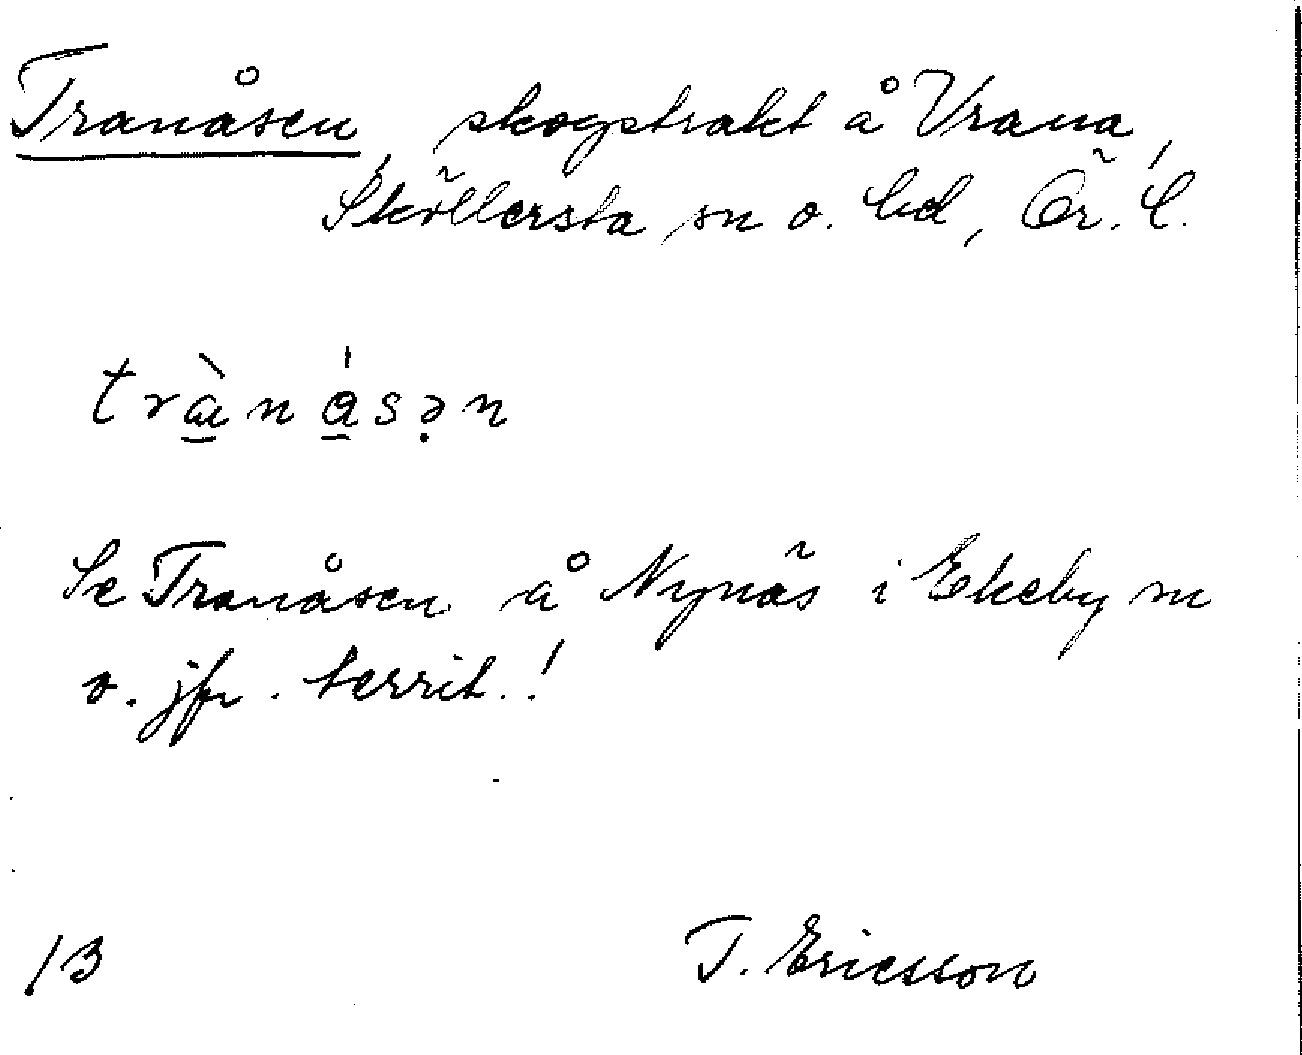 Tranåsen, skogstrakt å Vrana,
Sköllersta sn o. hd, Ör. l.
trànåsən
Se Tranåsen å Nynäs i Ekeby sn
o. jfr. territ.!
13
T. Ericsson